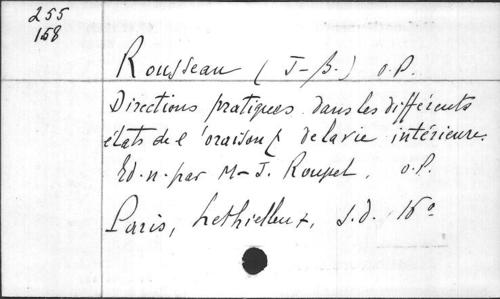 255
158
Rousseau (J-B.) o.P.
Directions pratiques dans les différents
états de l'oraison & de la vie intérieure.
Ed. n. par M-J. Rousset, o.P.
Paris, Lethielleux, s.d. 16°